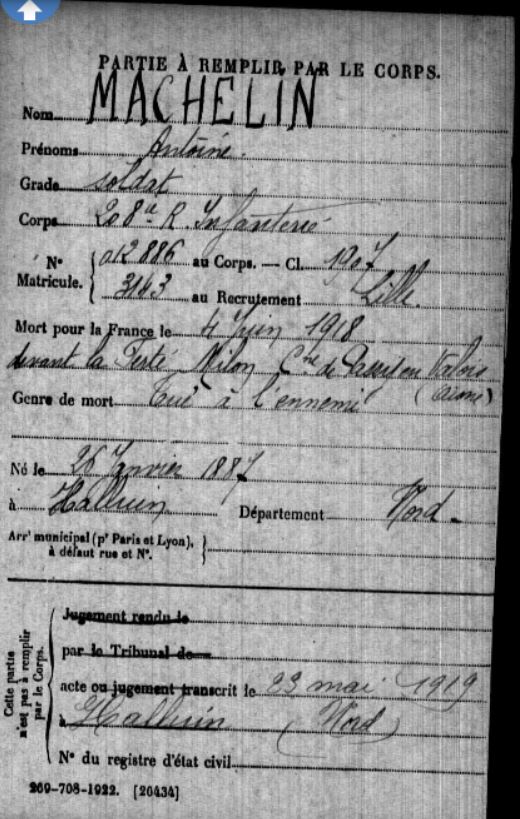 PARTIE À REMPLIR PAR LE CORPS.
Nom MACHELIN
Prénoms Antoine.
Grade soldat
Corps 208e R. Infanterie
N° Matricule. 012886 au Corps. — Cl. 1907
3163 au Recrutement Lille.
Mort pour la France le 4 Juin 1918
devant la Ferté Milon Cne de Passy en Valois
(Aisne)
Genre de mort Tué à l'ennemi
Né le 26 Janvier 1887
à Halluin Département Nord.
Arrt municipal (pr Paris et Lyon),
à défaut rue et N°.
Cette partie
n'est pas à remplir
par le Corps.
Jugement rendu le
par le Tribunal de
acte ou jugement transcrit le 23 mai 1919
à Halluin (Nord)
N° du registre d'état civil
269-708-1922. [26434]